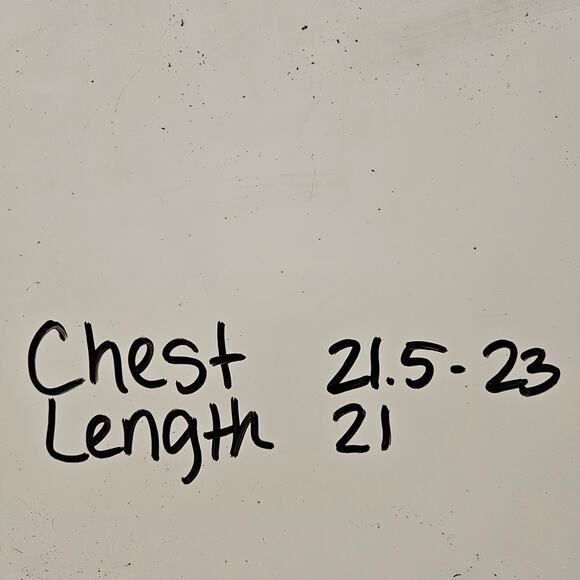 Chest 21.5-23
Length 21